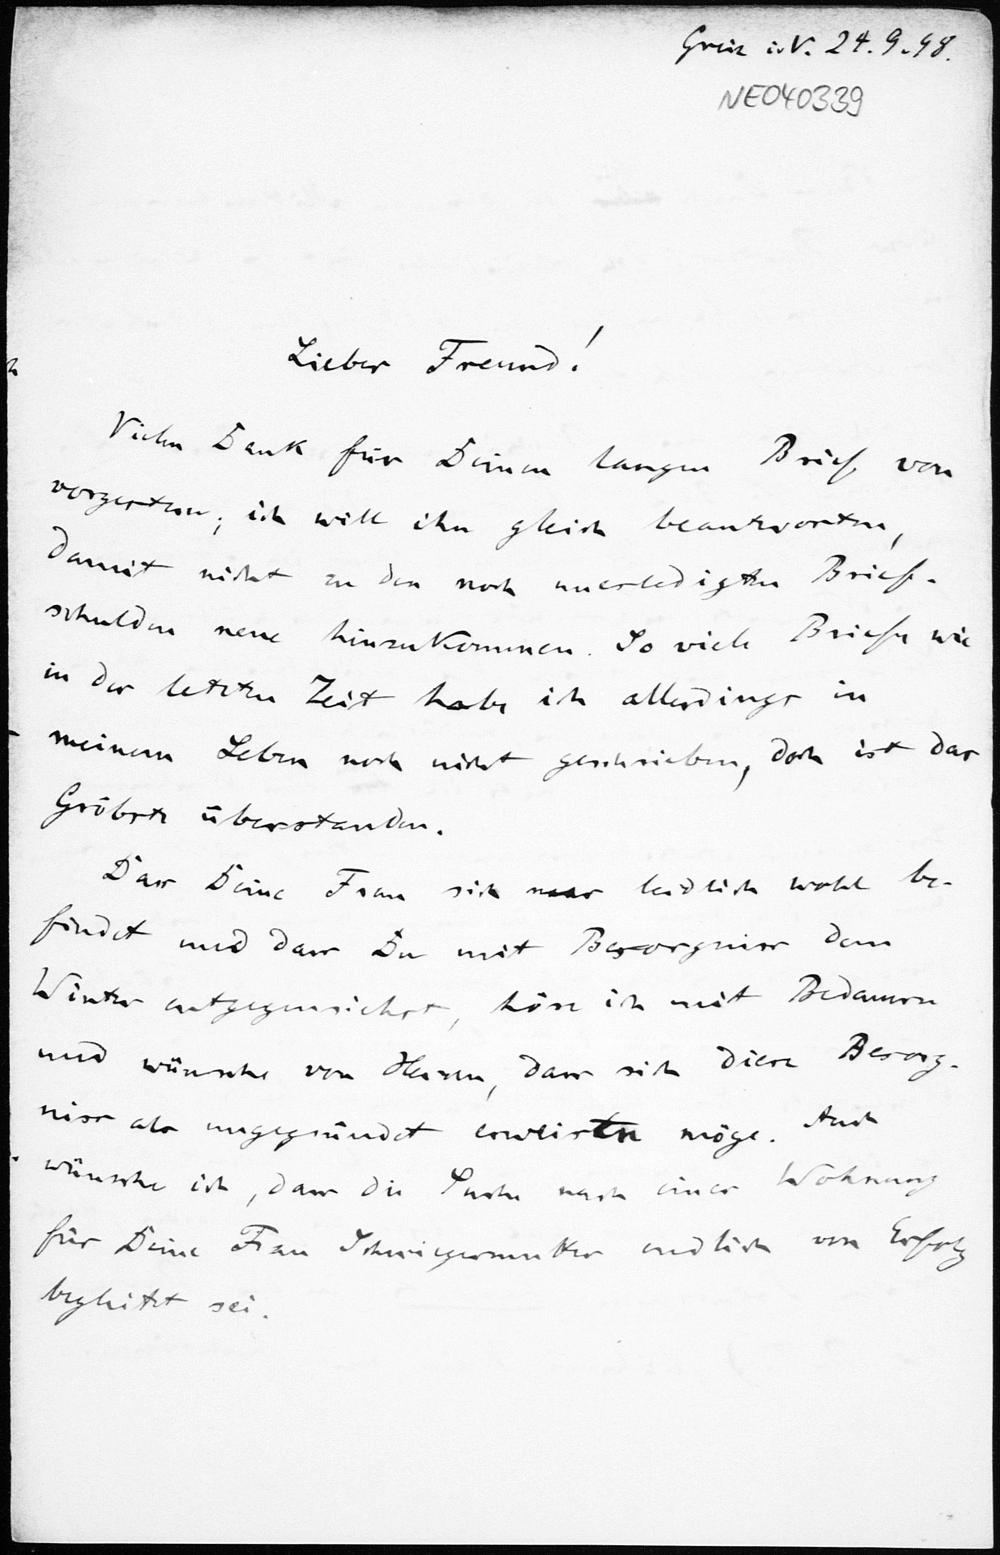 Greiz i. V. 24. 9. 98.
NE040339
Lieber Freund!
Vielen Dank für Deinen langen Brief von
vorgestern; ich will ihn gleich beantworten,
damit nicht zu den noch unerledigten Brief-
schulden neue hinzukommen. So viele Briefe wie
in der letzten Zeit habe ich allerdings in
meinem Leben noch nicht geschrieben, doch ist das
Gröbste überstanden.
Dass Deine Frau sich nur leidlich wohl be-
findet und dass Du mit Besorgniss dem
Winter entgegensiehst, höre ich mit Bedauern
und wünsche von Herzen, dass sich diese Besorg-
niss als ungegründet erweisen möge. Auch
wünsche ich, dass die Suche nach einer Wohnung
für Deine Frau Schwiegermutter endlich von Erfolg
begleitet sei.